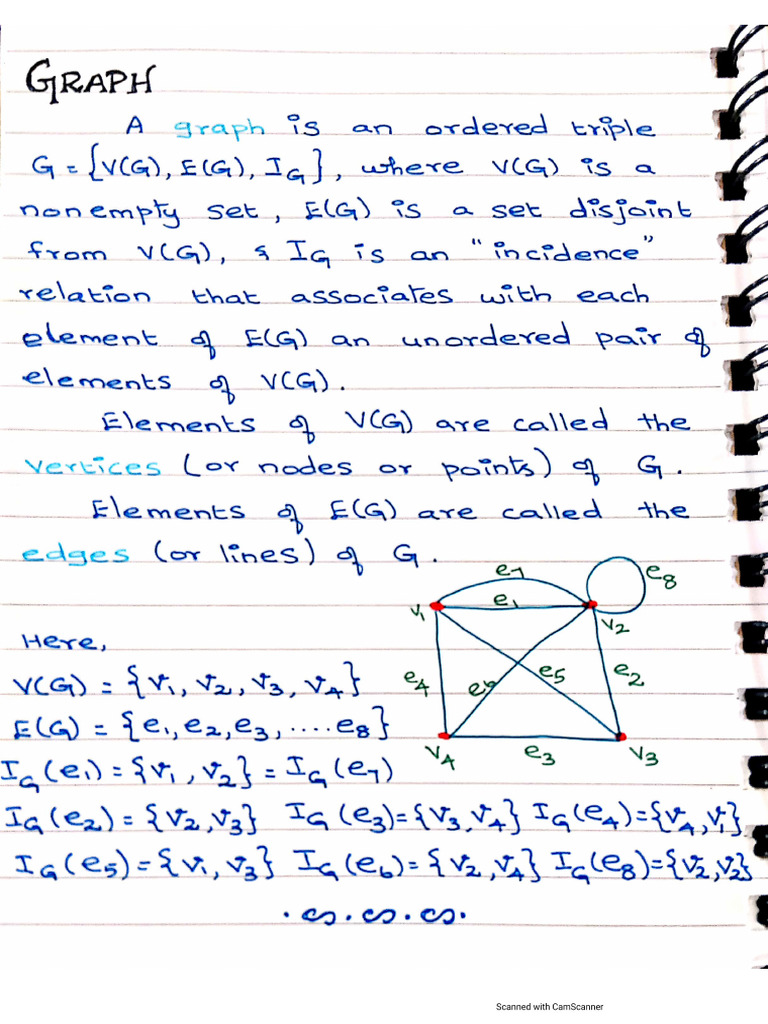 GRAPH
A graph is an ordered triple
G = {V(G), E(G), I_G}, where V(G) is a
nonempty set, E(G) is a set disjoint
from V(G), & I_G is an "incidence"
relation that associates with each
element of E(G) an unordered pair of
elements of V(G).
Elements of V(G) are called the
vertices (or nodes or points) of G.
Elements of E(G) are called the
edges (or lines) of G.
e₇
e₈
v₁
e₁
v₂
Here,
V(G) = {v₁, v₂, v₃, v₄}
e₄
e₆
e₅
e₂
E(G) = {e₁, e₂, e₃, ....e₈}
v₄
e₃
v₃
I_G(e₁) = {v₁, v₂} = I_G(e₇)
I_G(e₂) = {v₂, v₃} I_G(e₃) = {v₃, v₄} I_G(e₄) = {v₄, v₁}
I_G(e₅) = {v₁, v₃} I_G(e₆) = {v₂, v₄} I_G(e₈) = {v₂, v₂}
Scanned with CamScanner